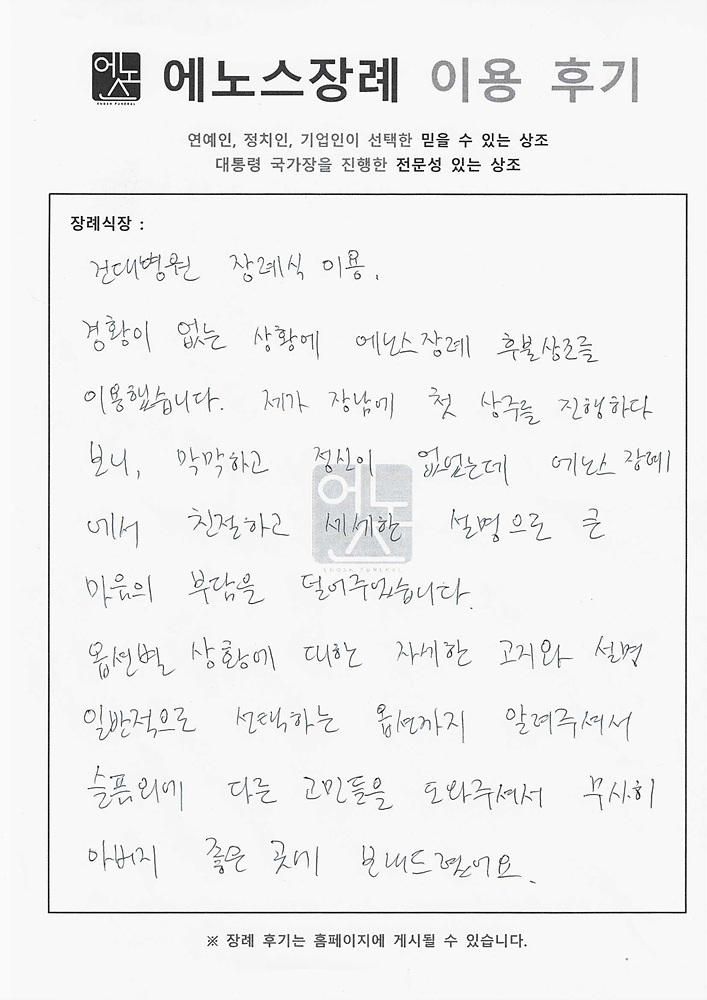 에노스
ENOSH FUNERAL
에노스장례 이용 후기
연예인, 정치인, 기업인이 선택한 믿을 수 있는 상조
대통령 국가장을 진행한 전문성 있는 상조
장례식장 :
건대병원 장례식 이용.
경황이 없는 상황에 에노스장례 후불상조를
이용했습니다. 제가 장남에 첫 상주를 진행하다
보니, 막막하고 정신이 없었는데 에노스 장례
에서 친절하고 세세한 설명으로 큰
마음의 부담을 덜어주었습니다.
옵션별 상황에 대한 자세한 고지와 설명
일반적으로 선택하는 옵션까지 알려주셔서
슬픔외에 다른 고민들을 도와주셔서 무사히
아버지 좋은 곳에 보내드렸어요.
에노스
ENOSH FUNERAL
※ 장례 후기는 홈페이지에 게시될 수 있습니다.